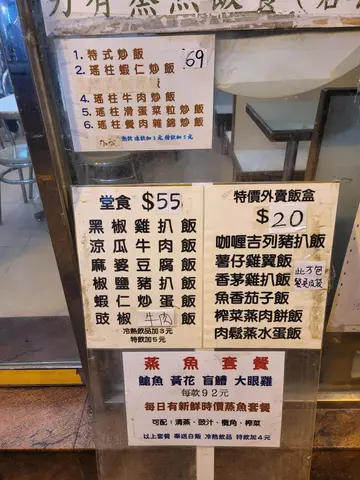 1. 特式炒飯
2. 瑤柱蝦仁炒飯
69
4. 瑤柱牛肉炒飯
5. 瑤柱滑蛋菜粒炒飯
6. 瑤柱餐肉雜錦炒飯
堂食 $55
黑椒雞扒飯
涼瓜牛肉飯
麻婆豆腐飯
椒鹽豬扒飯
蝦仁炒蛋飯
豉椒牛肉飯
冷熱飲品加3元
特飲加5元
特價外賣飯盒
$20
咖喱吉列豬扒飯
薯仔雞翼飯
香茅雞扒飯
魚香茄子飯
榨菜蒸肉餅飯
肉鬆蒸水蛋飯
蒸魚套餐
鯧魚 黃花 盲鰽 大眼雞
每款92元
每日有新鮮時價蒸魚套餐
可配：清蒸、豉汁、欖角、榨菜
以上套餐 奉送白飯 冷熱飲品 特飲加4元